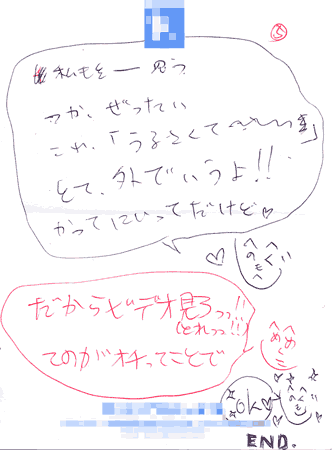 ⑤
私もそー思う
つか、ぜったい
これ、「うるさくて
とて、外でいうよ!!
かってにいってだけど♡
だからビデオ見ろっっ!!
(とれっっ!!)
てのがオチってことで
ok♡
END.